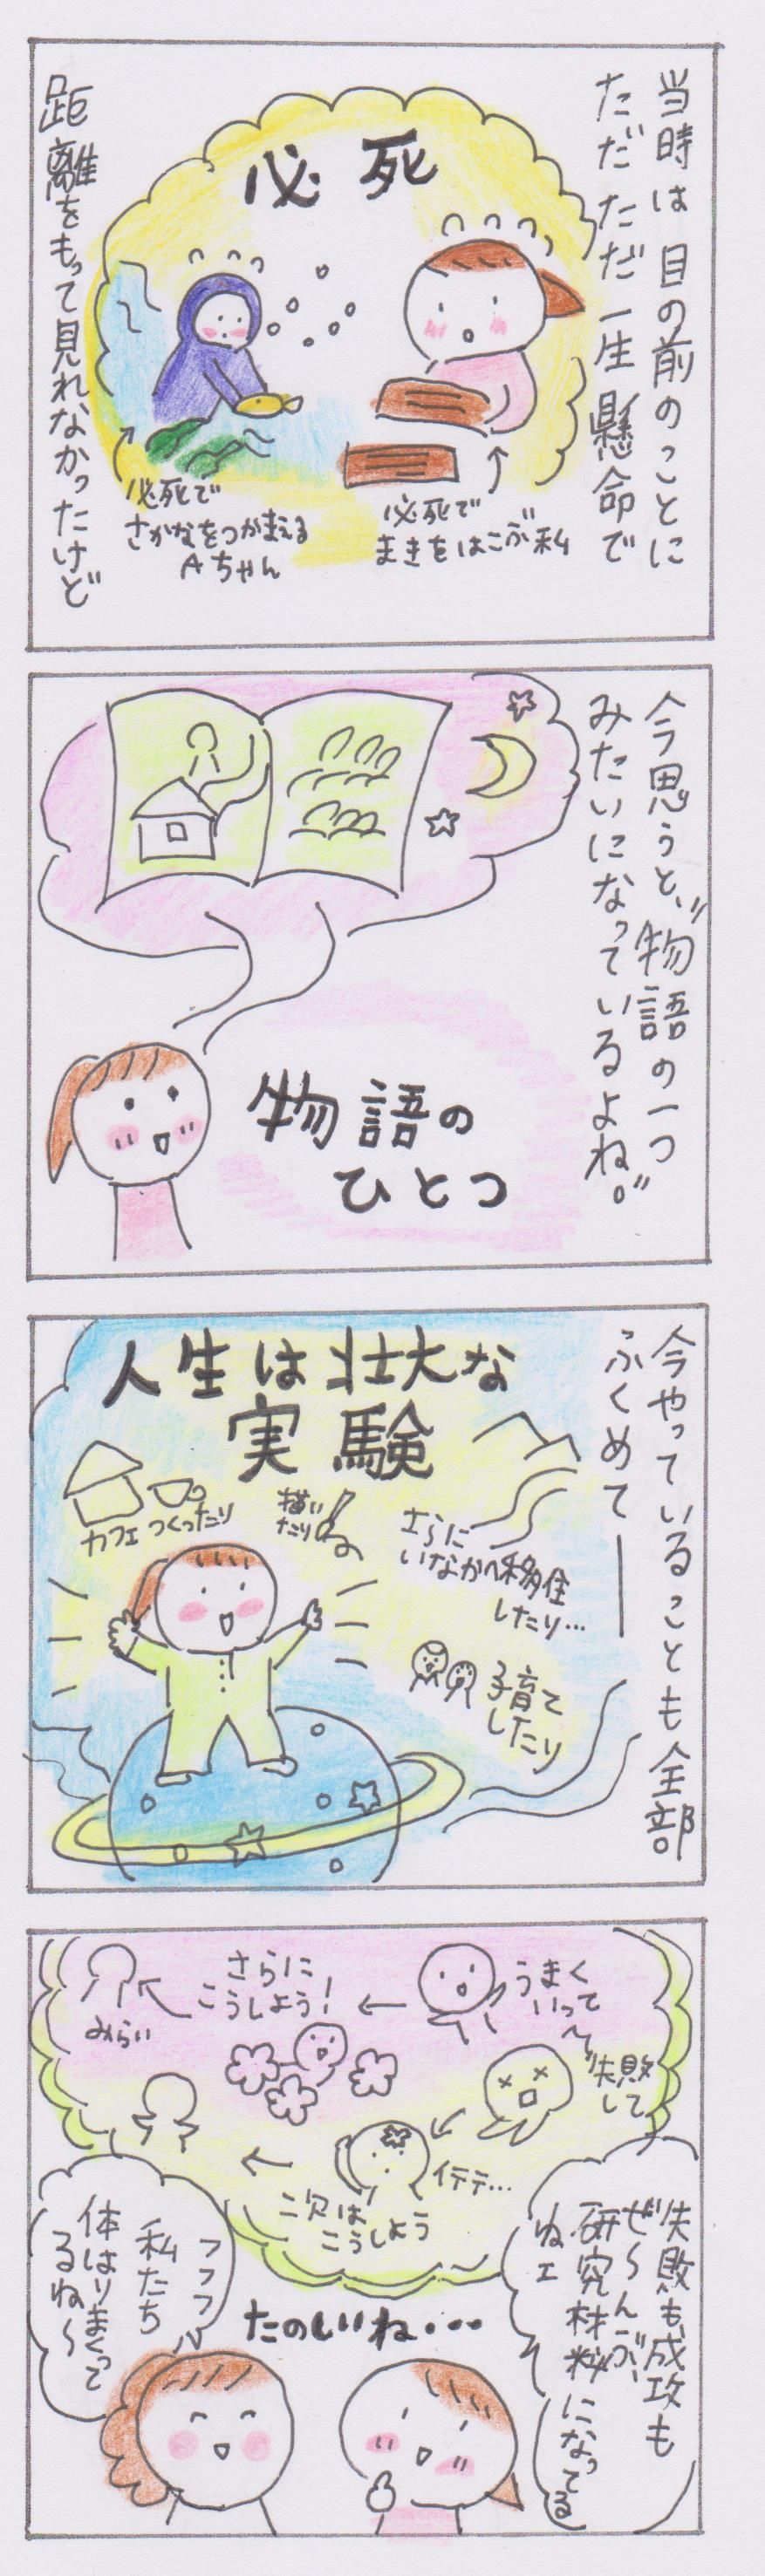 当時は目の前のことに
ただただ一生懸命で
必死
必死で
まきをはこぶ私
必死で
さかなをつかまえる
Aちゃん
距離をもって見れなかったけど
今思うと、"物語の一つ
みたいになっているよね。"
物語の
ひとつ
今やっていることも全部
ふくめて——
人生は壮大な
実験
カフェつくったり
描い
たり
さらに
いなかへ移住
したり…
子育て
したり
うまく
いって
さらに
こうしよう!
みらい
失敗
して
イテテ…
次は
こうしよう
失敗も成功も
ぜ〜んぶ、
研究材料になってる
ねェ
たのしいね・・・
フフフ
私たち
体はりまくって
るね〜